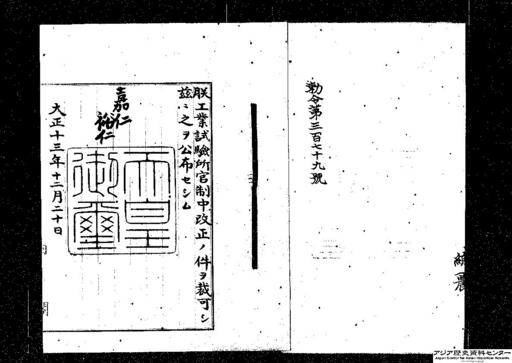 勅令第三百七十九號
朕工業試驗所官制中改正ノ件ヲ裁可シ
玆ニ之ヲ公布セシム
嘉仁
裕仁
天皇御璽
大正十三年十二月二十日
内閣
アジア歴史資料センター
Japan Center for Asian Historical Records